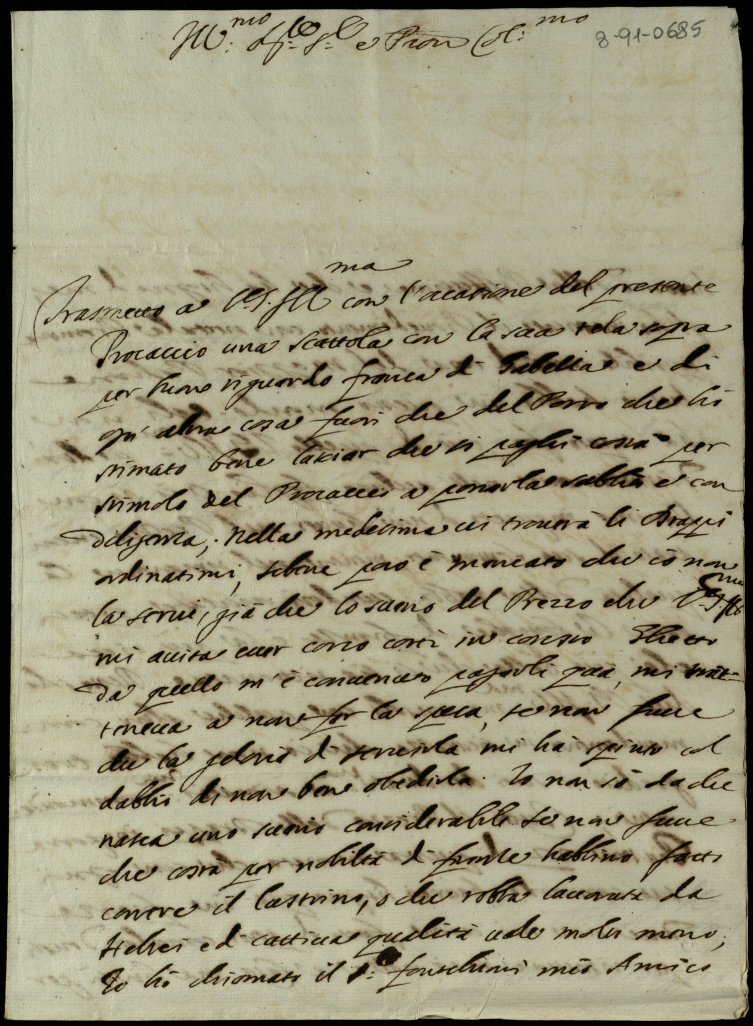 Ill.mo Sig.re Sig.re e Pron Col.mo
8-91-0685
Trasmetto a V.S. Ill.ma con l'occasione del presente
Procaccio una scattola con la sua tela sopra
per buon riguardo franca di Gabella e di
ogn' altra cosa fuori che del Porto che hò
stimato bene lasciar che si paghi costà per
stimolo del Procaccio a portarla subito e con
diligenza; Nella medesima vi trouerà li
ordinatimi, sebene poco è mancato che io non
la serui, già che lo suario del Prezzo che V.S. Ill.ma
mi auisa esser corso costì in cotesto Ghetto
da quello m'è conuenuto pagarli quà, mi
teneua a non far la spesa, se non fusse
che la gelosia di seruirla mi hà spinto col
dubbio di non bene obedirla. Io non sò da che
nasca uno suario considerabile se non fusse
che costà per nobiltà di fronte habbino fatto
correre il lustrino, o che robba lauorata da
Hebrei e di cattiua qualità uale molto meno;
Io hò chiamato il S. mio Amico